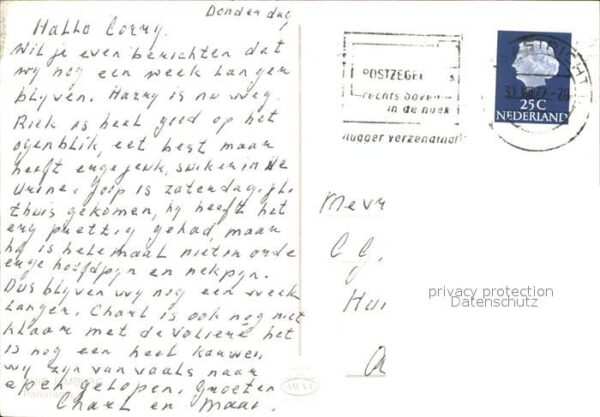 Donderdag
Hallo Corry.
Wil je even berichten dat
wy nog een week langer
blyven. Harry is nu weg.
Riek is heel goed op het
ogenblik, eet best maar
heeft suiker in de
Urine. Joop is zaterdag j.l.
thuis gekomen, hy heeft het
erg prettig gehad maar
hy is helemaal niet in orde
enge hoofdpyn en nekpyn.
Dus blyven wy nog een week
langer. Charl is ook nog niet
klaar met de volière het
is nog een heel karwei,
wy zyn van vaals naar
epen gelopen. Groeten
Charl en
POSTZEGEL
rechts boven
in de hoek
vlugger verzending
25C
NEDERLAND
Mevr
C.J.
Hui
privacy protection
Datenschutz